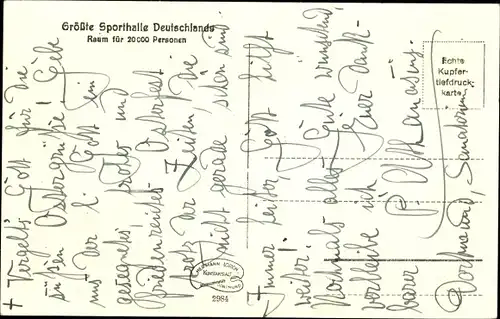 Größte Sporthalle Deutschlands
Raum für 20000 Personen
Echte
Kupfer-
tiefdruck-
karte
+ Vergelt's Gott für die
süßen Ostergrüße! Gebe
uns der l. Gott ein
gesegnetes, frohes und
friedenreiches Osterfest
trotz der Zeiten, die
nicht gerade selten sind.
Immer heiter, Gott hilft
weiter!
Nochmals alles Gute wünschend,
verbleibe ich Euer dank-
barer
P. Athanasius.
Dortmund, Sanatorium
2984